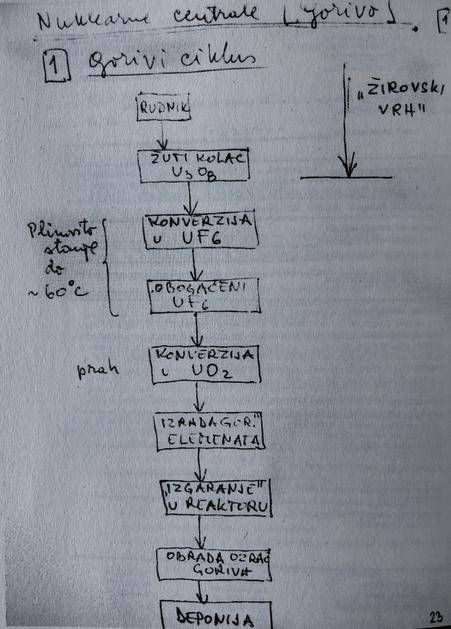 Nuklearne centrale [gorivo]. [1
1 gorivi ciklus
RUDNIK
"ŽIROVSKI
VRH"
ŽUTI KOLAČ
U3O8
KONVERZIJA
U UF6
Plinovito
stanje
do
~60°C
OBOGAĆENI
UF6
KONVERZIJA
U UO2
prah
IZRADA GOR."
ELEMENATA
"IZGARANJE"
U REAKTORU
OBRADA OZRAČ
GORIVA
DEPONIJA
23